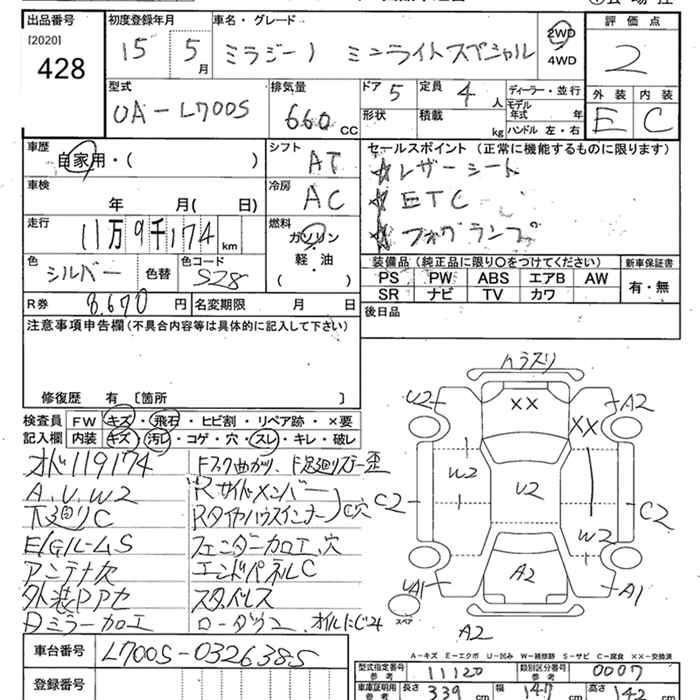 出品番号 初度登録年月 車名・グレード 評価点
[2020]
428
15 5月 ミラジーノ ミニライトスペシャル 2WD 4WD 2
型式 排気量 ドア 5 定員 4人 ディーラー・並行 外装 内装
UA-L700S 660 cc 形状 積載 kg モデル年式 年 ハンドル 左・右 E C
車歴 シフト セールスポイント (正常に機能するものに限ります)
自家用・( ) AT ☆レザーシート
車検 冷房 ☆ETC
年 月( 日) AC ☆フォグランプ
走行 燃料
11万9千174km ガソリン
軽・油
( )
色 シルバー 色替 色コード S28
装備品 (純正品に限り○をつけてください) 新車保証書
PS PW ABS エアB AW 有・無
SR ナビ TV カワ
R券 8,670円 名変期限 月 日
後日品
注意事項申告欄(不具合内容等は具体的に記入して下さい)
修復歴 有 [箇所 ]
検査員記入欄 FW キズ・飛石・ヒビ割・リペア跡・×要
内装 キズ・汚レ・コゲ・穴・スレ・キレ・破レ
オド119174 Fスク曲がり、F足廻りステー歪
A.U.W2 Rサイドメンバー
下廻りC RタイヤハウスインナーC穴
E/Gルーム S フェンダー加工、穴
アンテナ欠 エンドパネルC
外装PPセ スタッドレス
Dミラー加工 ローダウン、オイルにじみ
ハラスリ
U2 XX A2
XX
W2 U2 C2 C2
W2
A2
UA1 A1
スペア
A2
A-キズ E-エクボ U-凹み W-補修跡 S-サビ C-腐食 XX-交換済
車台番号 L700S-0326385
型式指定番号 参考 11120 類別区分番号 参考 0007
登録番号
車庫証明用 参考 長さ 339 cm 幅 147 cm 高さ 142 cm